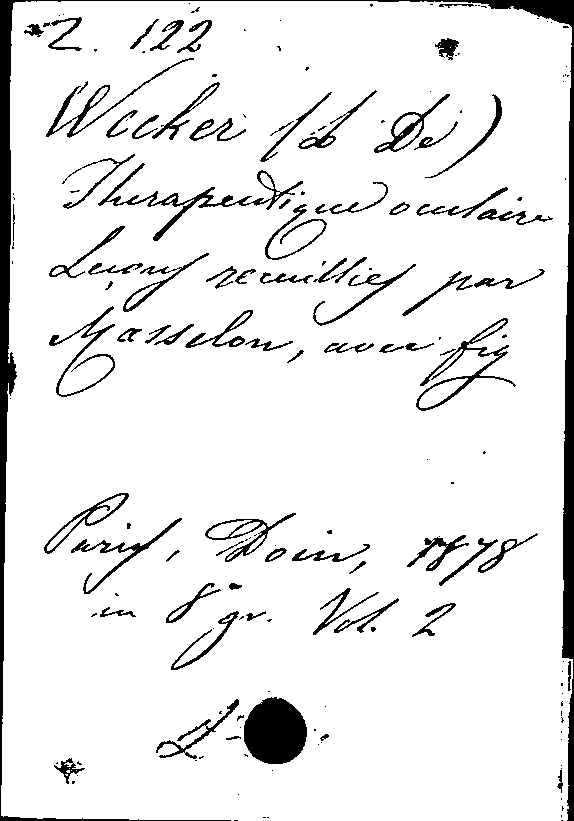 Z. 122
Wecker (L De)
Therapeutique oculaire
Leçons recueillies par
Masselon, avec fig
Paris, Doin, 1878
in 8° gr. Vol. 2